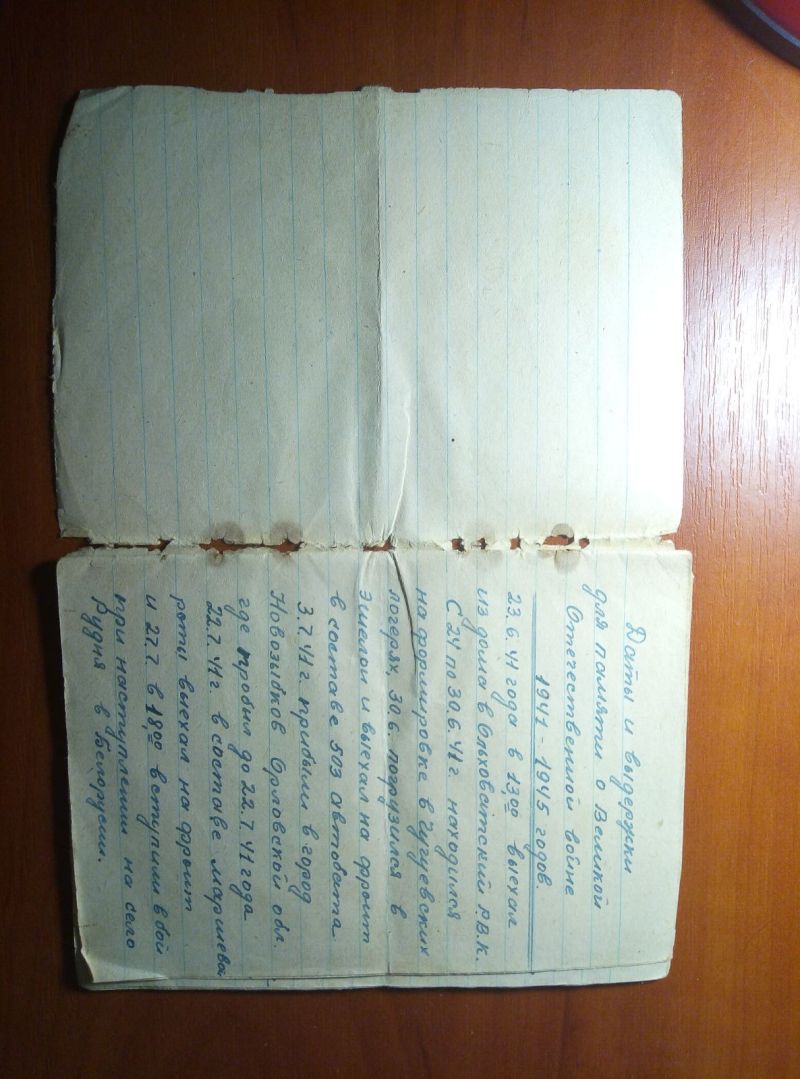 Даты и выдержки
для памяти о Великой
Отечественной войне
1941-1945 годов.
23.6.41 года в 13.00 выехал
из дома в Ольховатский Р.В.К.
С 24 по 30.6.41 г. находился
на формировке в Чугуевских
логерях, 30.6. погрузился в
эшелон и выехал на фронт
в составе 503 автобата
3.7.41 г. прибыли в город
Новозыбков Орловской обл.
где пробыл до 22.7.41 года
22.7.41 г. в составе маршевой
роты выехал на фронт
и 27.7 в 18.00 вступили в бой
при наступлении на село
Рудня в Белорусии.